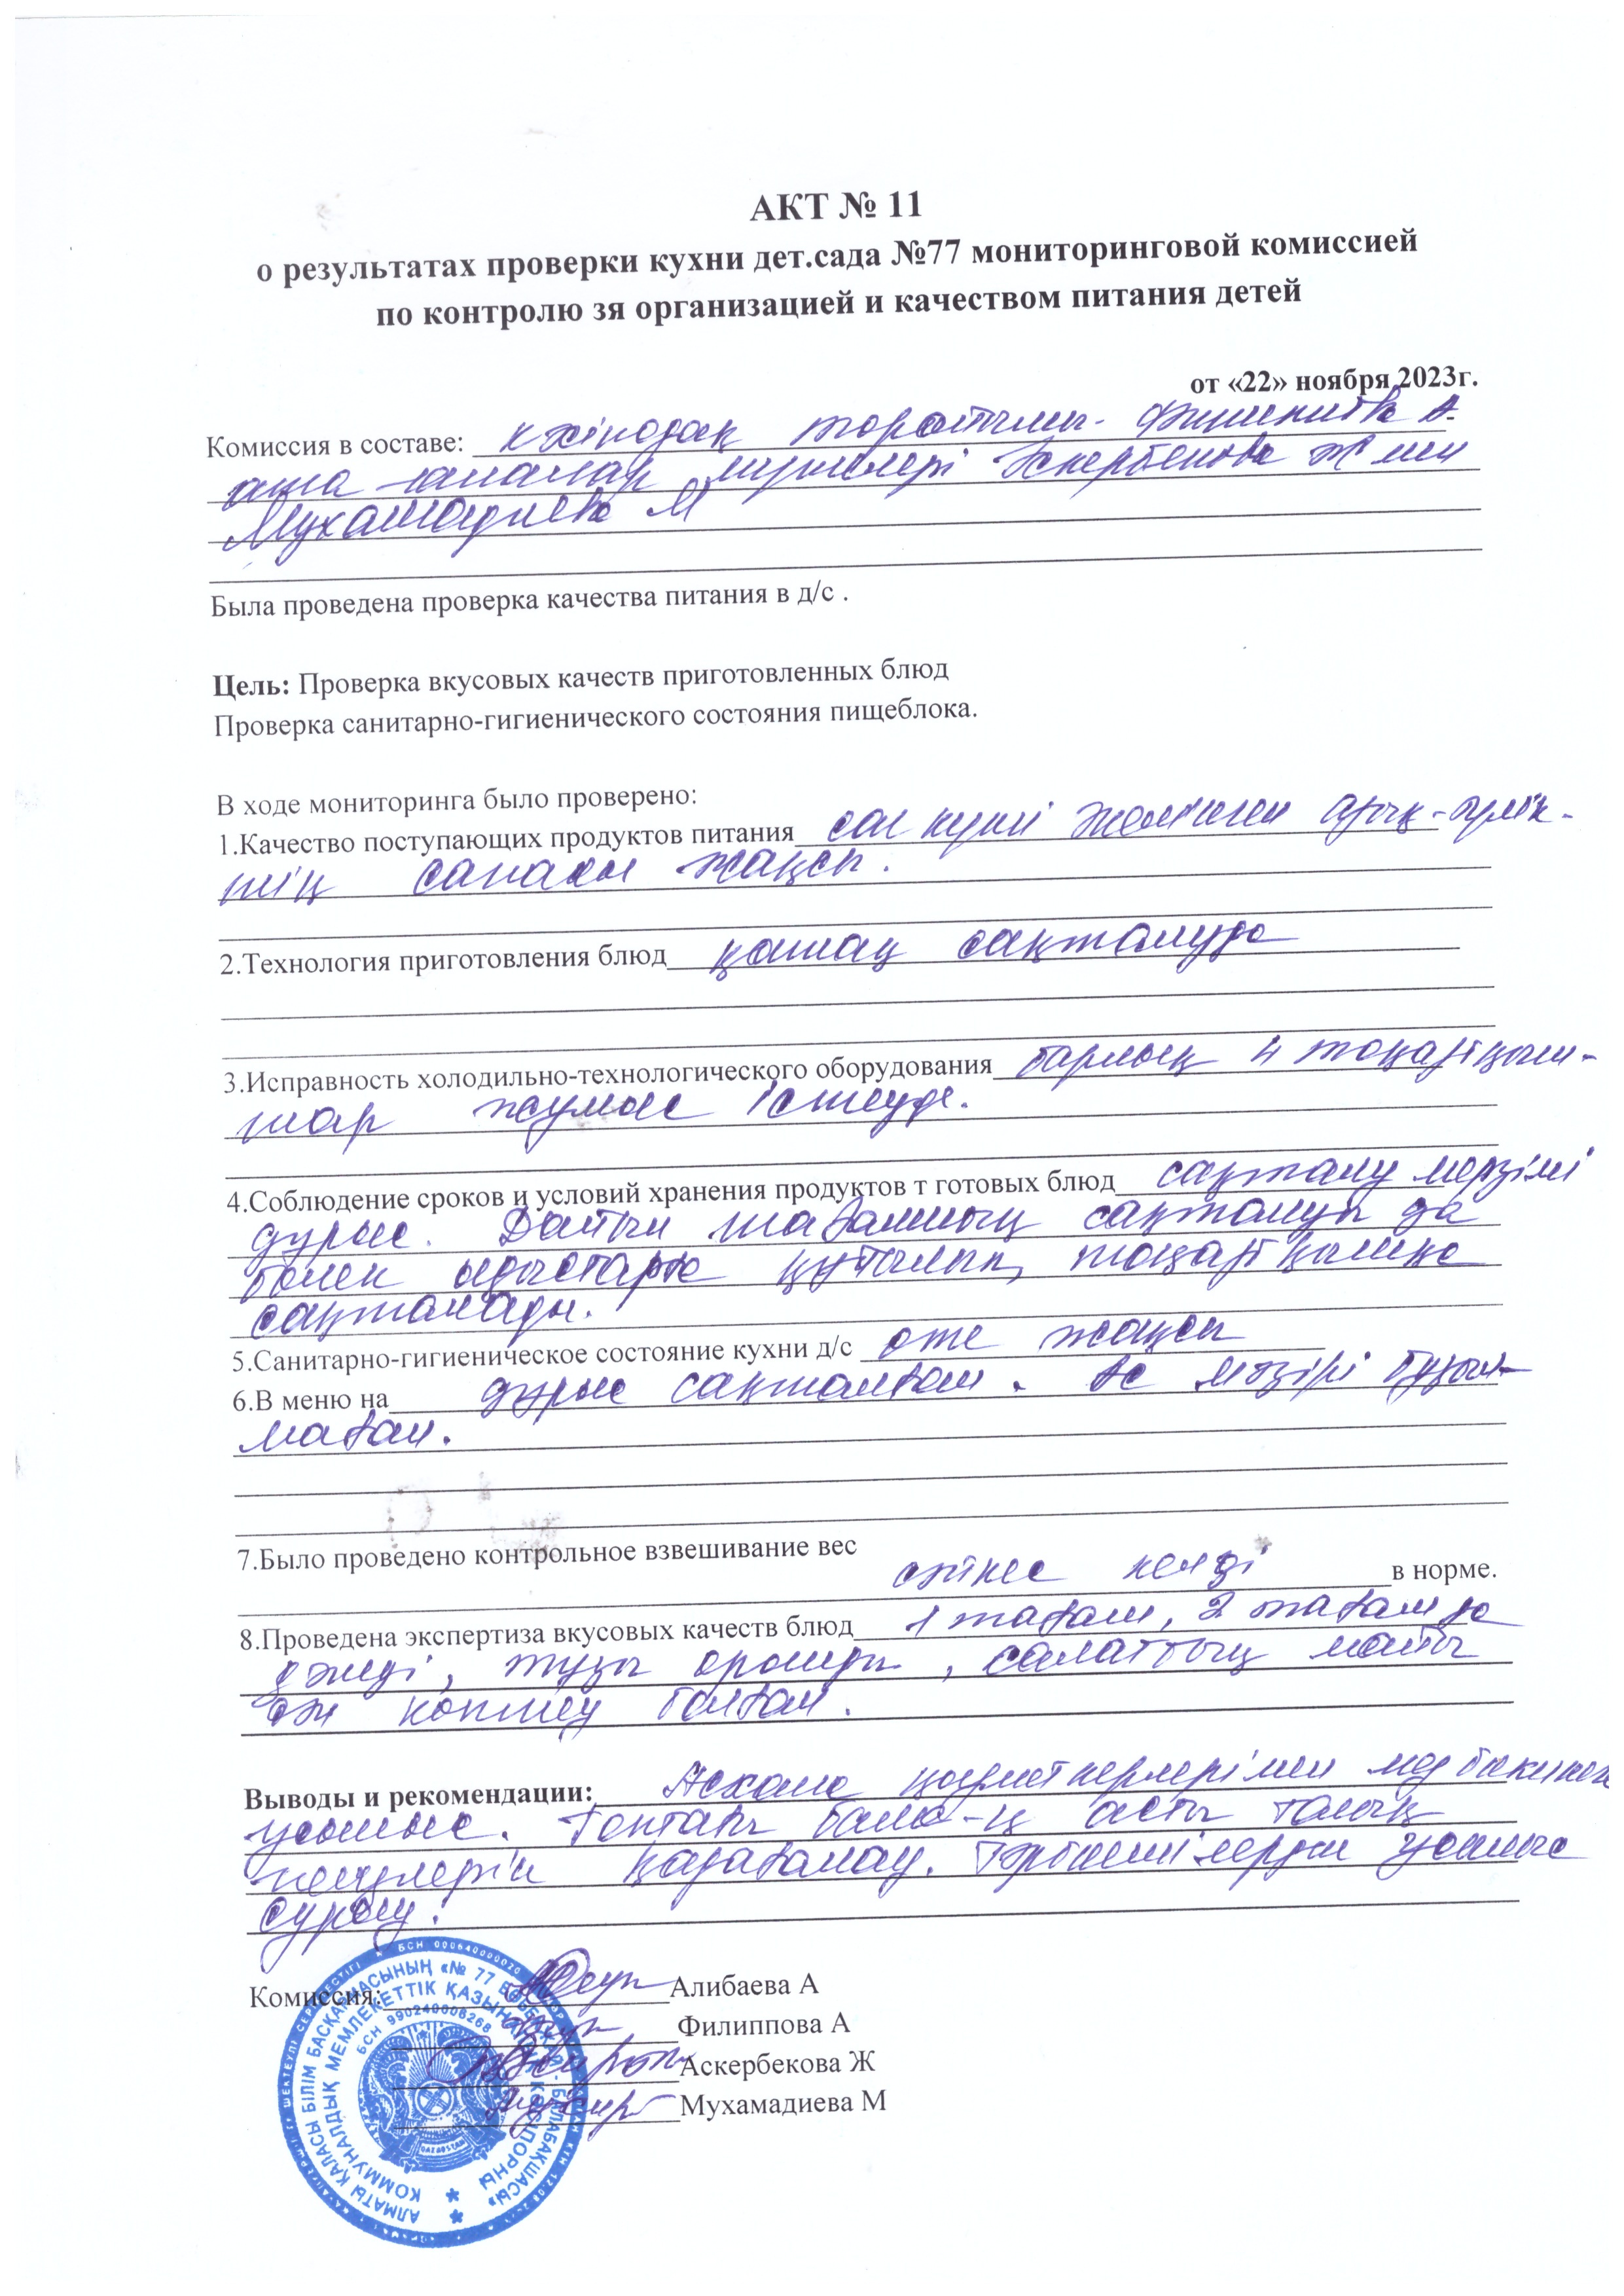 АКТ № 11
о результатах проверки кухни дет.сада №77 мониторинговой комиссией
по контролю зя организацией и качеством питания детей
от «22» ноября 2023г.
Комиссия в составе: кәсіподақ төрайымы-
ата-аналар мүшелері Аскербекова Ж мен
Мухамадиева М
Была проведена проверка качества питания в д/с .
Цель: Проверка вкусовых качеств приготовленных блюд
Проверка санитарно-гигиенического состояния пищеблока.
В ходе мониторинга было проверено:
1.Качество поступающих продуктов питания сол күнгі азық-түлік-
тің сапасы жақсы.
2.Технология приготовления блюд қатаң сақталуда
3.Исправность холодильно-технологического оборудования барлық 4 тоңазытқыш-
тар жұмыс істеуде.
4.Соблюдение сроков и условий хранения продуктов т готовых блюд сақталу мерзімі
дұрыс. Дайын тағамның сақталуы да
бөлек ыдыстарға құйылып, тоңазытқышқа
сақталады.
5.Санитарно-гигиеническое состояние кухни д/с өте жақсы
6.В меню на дұрыс сақталған. Ас мәзірі бұзыл-
маған.
7.Было проведено контрольное взвешивание вес
сәйкес келді в норме.
8.Проведена экспертиза вкусовых качеств блюд 1 тағам, 2 тағам да
дәмді, тұзы орынды, салаттың майы
сәл көптеу болған.
Выводы и рекомендации: Асхана қызметкерлеріне
ұсыныс. бала-ң асты толық
жеулерін қадағалау. Тәрбиешілерден ұсыныс
сұрау.
Комиссия: Алибаева А
Филиппова А
Аскербекова Ж
Мухамадиева М
АЛМАТЫ ҚАЛАСЫ БІЛІМ БАСҚАРМАСЫНЫҢ «№ 77 БӨБЕКЖАЙ-БАЛАБАҚШАСЫ»
КОММУНАЛДЫҚ МЕМЛЕКЕТТІК ҚАЗЫНАЛЫҚ КӘСІПОРНЫ
БСН 990240006268